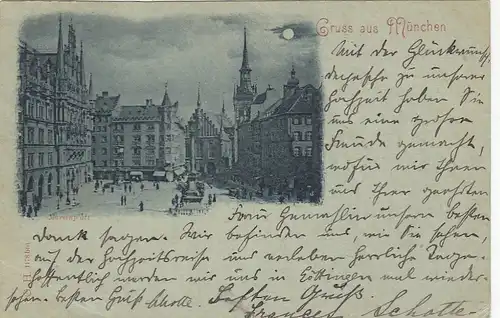 Gruss aus München
Mit der Glückwunsch
depesche zu unserer
Hochzeit haben Sie
uns eine große
Freude gemacht,
wofür wir Ihnen
und Ihrer geehrten
Marienplatz
Frau Gemahlin unsern besten
Dank sagen. Wir befinden uns, wie Sie sehen,
auf der Hochzeitsreise und verleben herrliche Tage.
Hoffentlich werden wir uns in Göttingen mal wieder-
sehen. Besten Gruß Schotte.
Besten Gruß
Frances Schotte